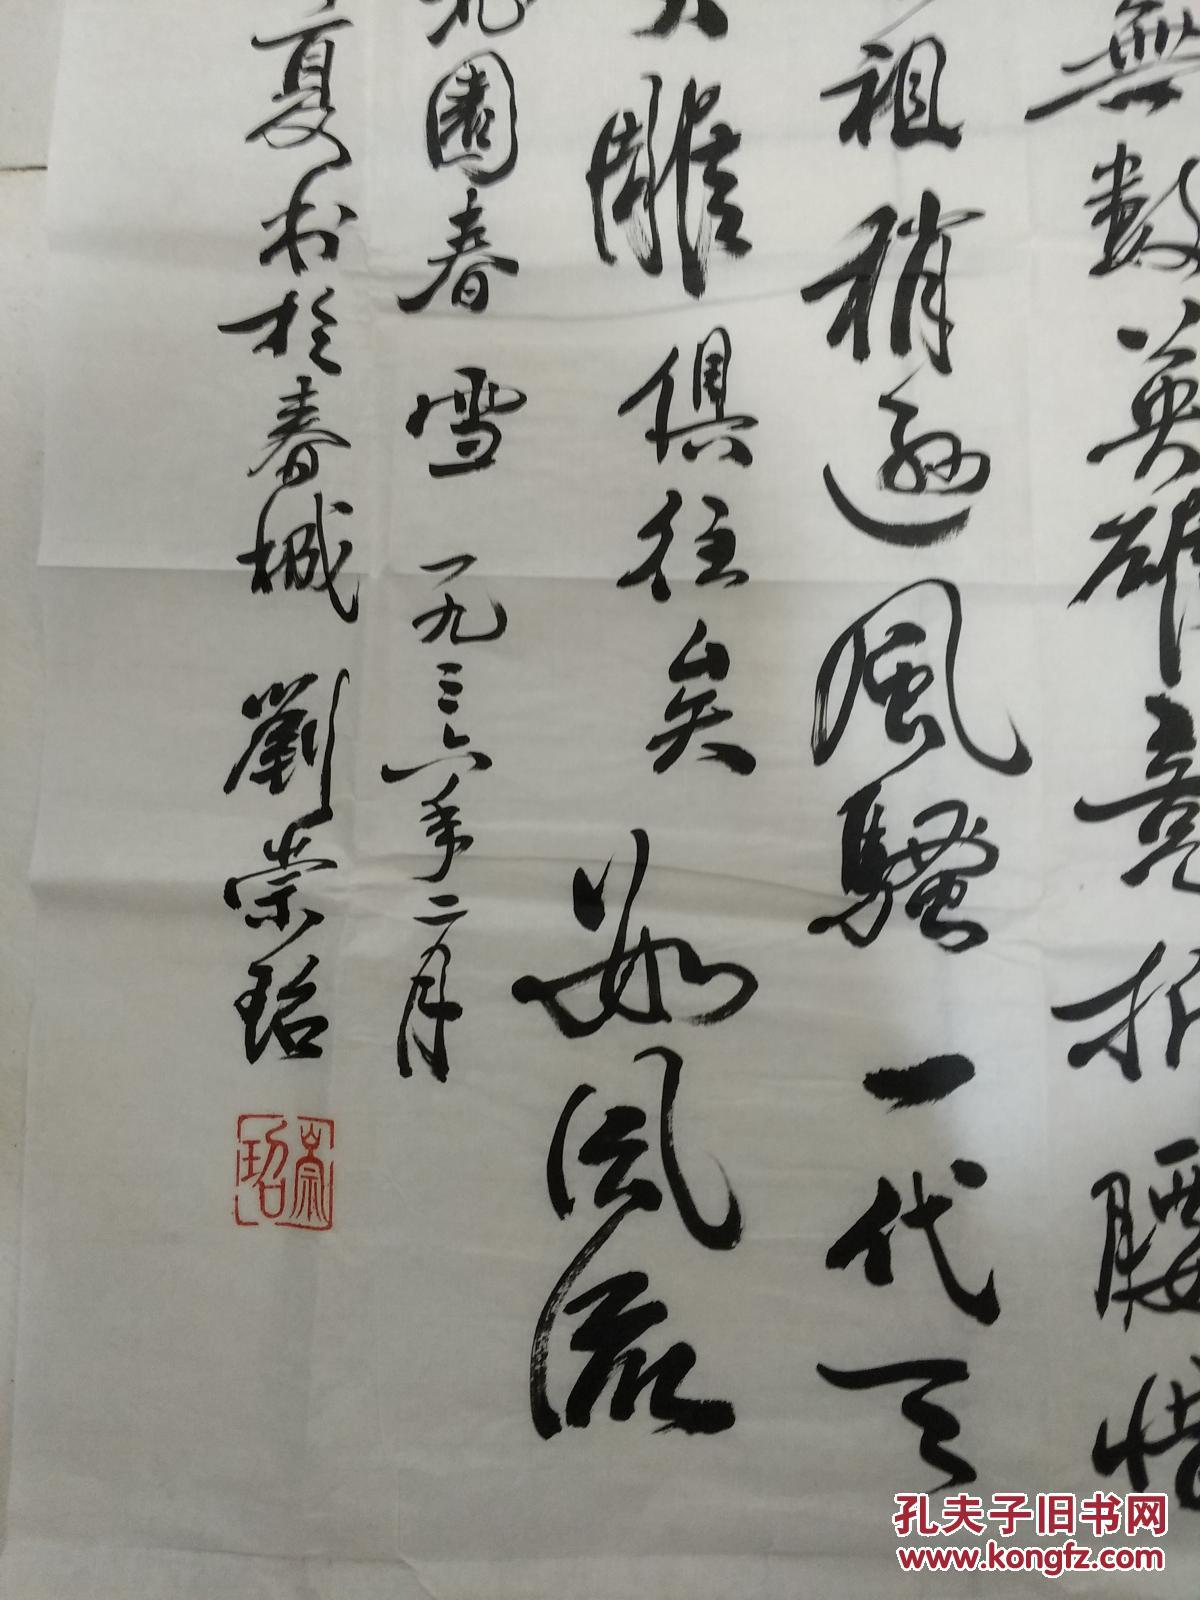 無數英雄竞折腰惜
祖稍遜風騷一代天
雕俱往矣数风流
园春雪一九三六年二月
夏书於春城劉崇珆
崇珆
孔夫子旧书网
www.kongfz.com